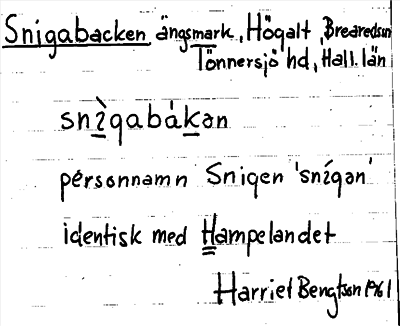 Snigabacken, ängsmark, Högalt, Brearedssn
Tönnersjö hd, Hall. län
snìgabákən
personnamn Snigen 'snígən'
identisk med Hampelandet
Harriet Bengtsson 1961